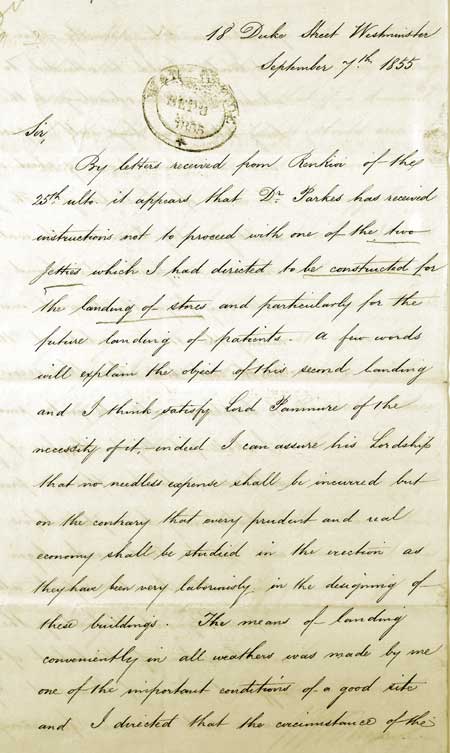 18 Duke Street Westminster
September 7th. 1855
WAR OFFICE
SEP 8
1855
Sir,
By letters received from Renkioi of the
25th. ulto. it appears that Dr. Parkes has received
instructions not to proceed with one of the two
Jetties which I had directed to be constructed for
the landing of stores and particularly for the
future landing of patients. A few words
will explain the object of this second landing
and I think satisfy Lord Panmure of the
necessity of it, - indeed I can assure his Lordship
that no needless expense shall be incurred but
on the contrary that every prudent and real
economy shall be studied in the erection as
they have been very laboriously in the designing of
these buildings. The means of landing
conveniently in all weathers was made by me
one of the important conditions of a good site
and I directed that the circumstance of the